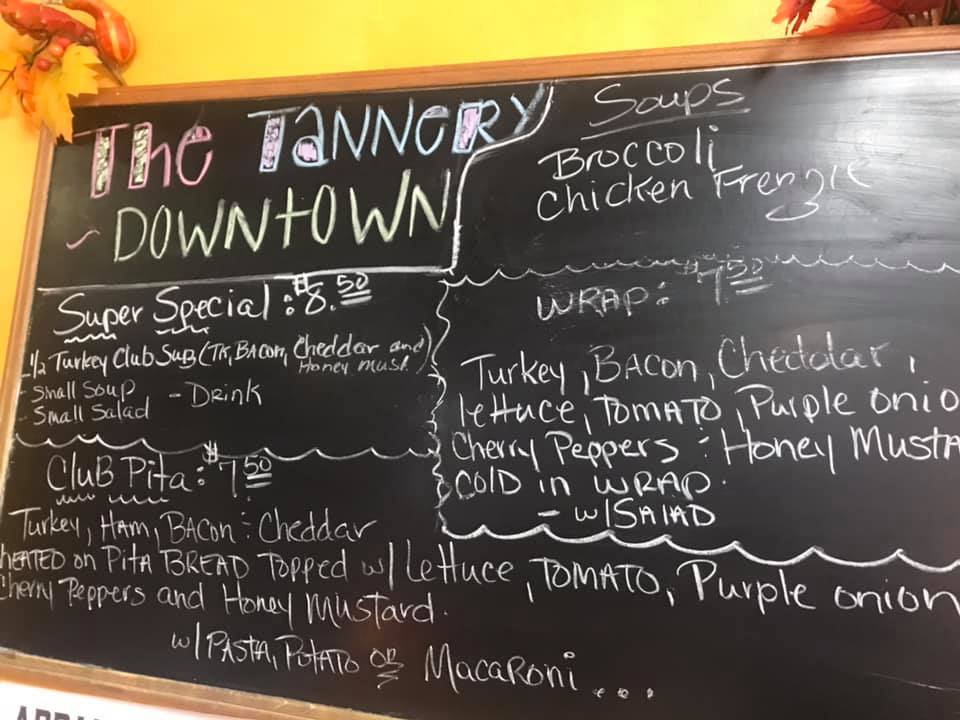 The Tannery
~ Downtown
Soups
Broccoli
Chicken Frengie
Super Special: $8.50
1/2 Turkey Club Sub (TK, Bacon, Cheddar and
Honey Must.)
- Small Soup - Drink
- Small Salad
Wrap: $7.50
Turkey, Bacon, Cheddar,
lettuce, Tomato, Purple onio
Cherry Peppers : Honey Musta
Cold in wrap.
- w/Salad
Club Pita: $7.50
Turkey, Ham, Bacon : Cheddar
heated on Pita Bread Topped w/ Lettuce, Tomato, Purple onion
Cherry Peppers and Honey Mustard.
w/ Pasta, Potato or Macaroni...